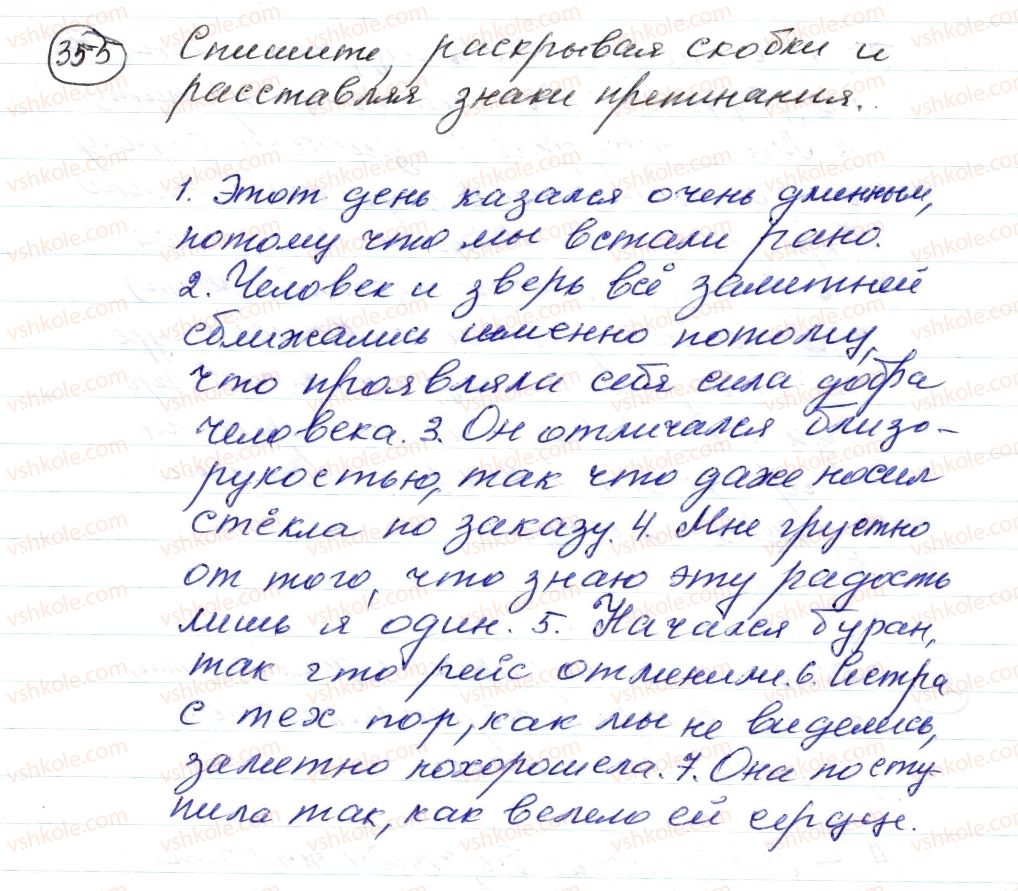 355 Спишите, раскрывая скобки и
расставляя знаки препинания.
1. Этот день казался очень длинным,
потому что мы встали рано.
2. Человек и зверь всё заметней
сближались именно потому,
что проявляла себя сила добра
человека. 3. Он отличался близо-
рукостью, так что даже носил
стёкла по заказу. 4. Мне грустно
от того, что знаю эту радость
лишь я один. 5. Начался буран,
так что рейс отменили. 6. Сестра
с тех пор, как мы не виделись,
заметно похорошела. 7. Она посту-
пила так, как велело ей сердце.